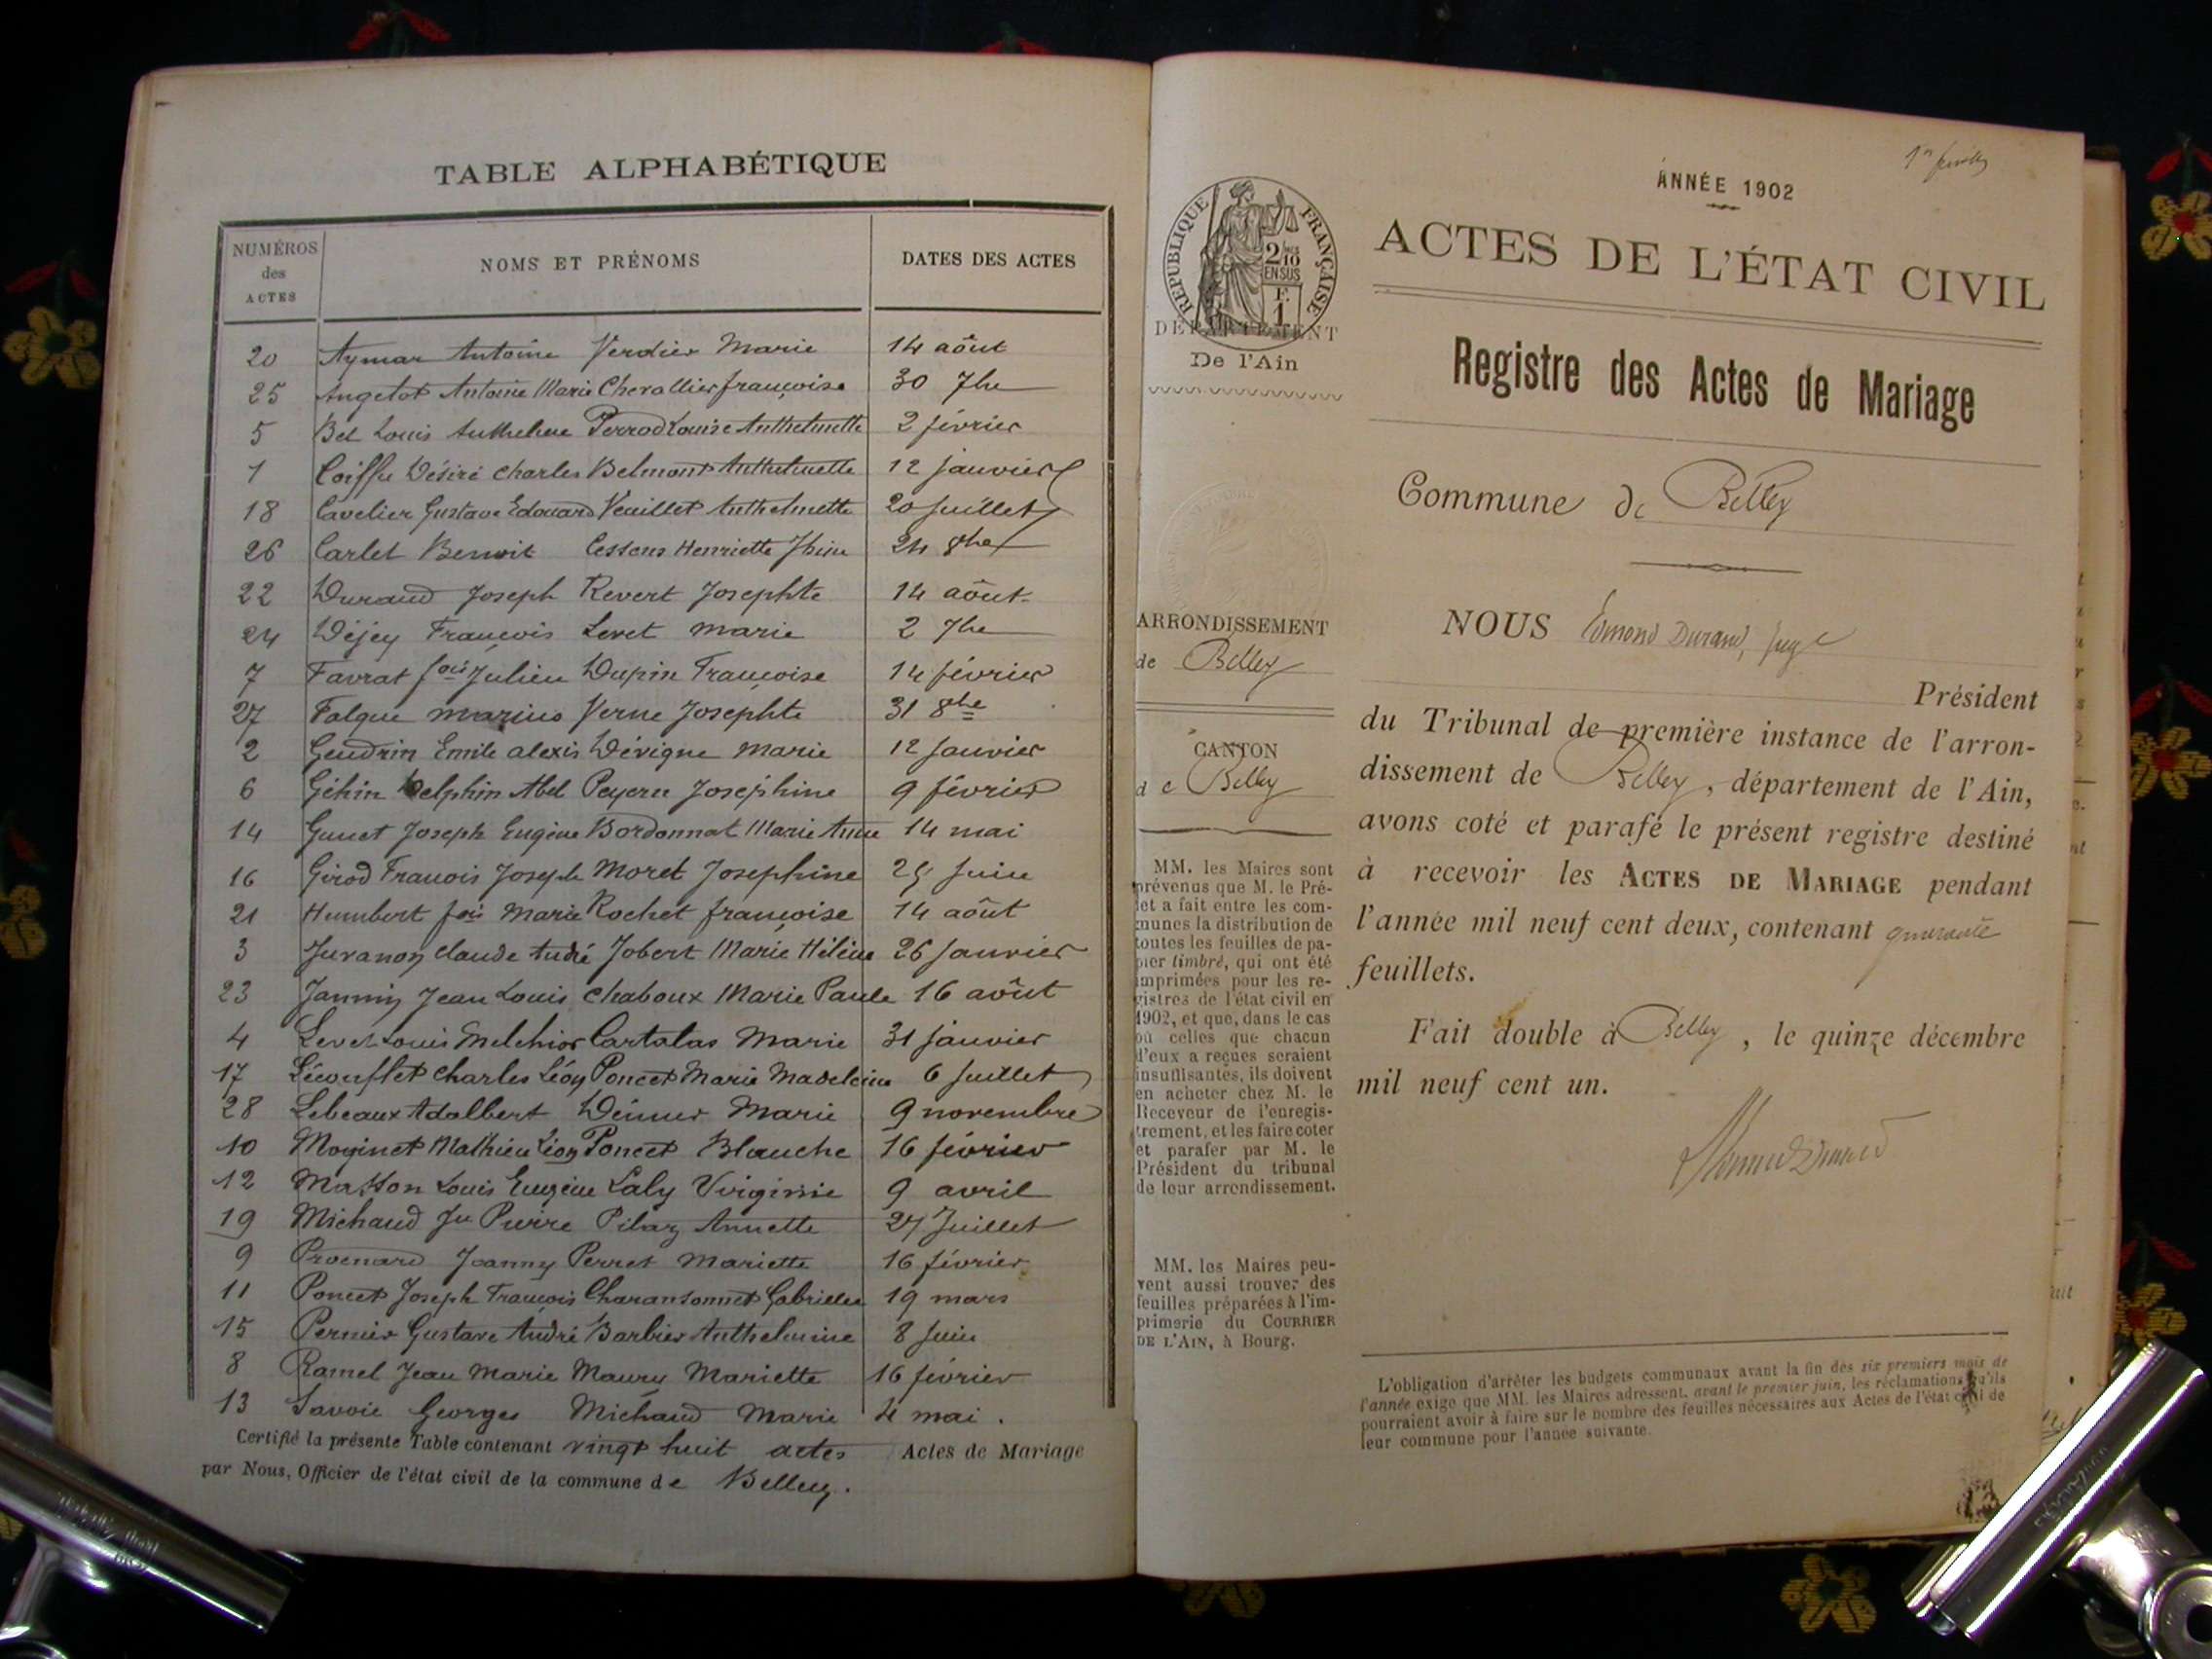 TABLE ALPHABÉTIQUE
NUMÉROS des ACTES NOMS ET PRÉNOMS DATES DES ACTES
20 Aymar Antoine Verdier Marie 14 aôut
25 Angelot Antoine Marie Chevallier françoise 30 7bre
5 Bel Louis Anthelme Perrod Louise Anthelmette 2 février
1 Coiffu Désiré Charles Belmont Anthelmette 12 janvier
18 Cavelier Gustave Edouard Veuillet Anthelmette 20 Juillet
26 Carlet Benoit Cessens Henriette 24 8bre
22 Durand Joseph Revert Josephte 14 aôut
24 Déjey François Levet Marie 2 7bre
7 Favrat fois Julien Dupin Françoise 14 février
27 Falque Marius Verne Josephte 31 8bre
2 Gendrin Emile alexis Dévigne Marie 12 Janvier
6 Géhin Delphin Abel Peyern Joséphine 9 février
14 Gunet Joseph Eugène Bordonnat Marie Anne 14 mai
16 Girod François Joseph Moret Josephine 25 Juin
21 Humbert fois Marie Rochet françoise 14 aôut
3 Juranoy Claude André Jobert Marie Hélène 26 Janvier
23 Jannin Jean Louis Chaboux Marie Paule 16 aôut
4 Levet Louis Melchior Cartalas Marie 31 janvier
17 Lécouflet Charles Léon Poncet Marie Madeleine 6 Juillet
28 Lebeaux Adalbert Marie 9 novembre
10 Moginet Mathieu Léon Poncet Blanche 16 février
12 Masson Louis Eugène Laly Virginie 9 avril
19 Michaud Jn Pierre Pilaz Annette 27 Juillet
9 Proenard Joanny Perret Mariette 16 février
11 Poncet Joseph François Charansonnet Gabrielle 19 mars
15 Pernier Gustave André Barbier Anthelmine 8 Juin
8 Ramel Jean Marie Maury Mariette 16 février
13 Savoie Georges Michaud Marie 4 mai .
Certifié la présente Table contenant vingt huit actes Actes de Mariage
par Nous, Officier de l'état civil de la commune de Belley.
ANNÉE 1902
ACTES DE L'ÉTAT CIVIL
RÉPUBLIQUE FRANÇAISE
2/10
EN SUS
F.
1
DÉPARTEMENT
De l'Ain
Registre des Actes de Mariage
Commune de Belley
ARRONDISSEMENT
de Belley
CANTON
de Belley
NOUS Edmond Durand, Juge
Président
du Tribunal de première instance de l'arron-
dissement de Belley, département de l'Ain,
avons coté et parafé le présent registre destiné
à recevoir les ACTES DE MARIAGE pendant
l'année mil neuf cent deux, contenant quarante
feuillets.
Fait double à Belley, le quinze décembre
mil neuf cent un.
MM. les Maires sont
prévenus que M. le Pré-
fet a fait entre les com-
munes la distribution de
toutes les feuilles de pa-
pier timbré, qui ont été
imprimées pour les re-
gistres de l'état civil en
1902, et que, dans le cas
où celles que chacun
d'eux a reçues seraient
insuffisantes, ils doivent
en acheter chez M. le
Receveur de l'enregis-
trement, et les faire coter
et parafer par M. le
Président du tribunal
de leur arrondissement.
MM. les Maires peu-
vent aussi trouver des
feuilles préparées à l'im-
primerie du COURRIER
DE L'AIN, à Bourg.
L'obligation d'arrêter les budgets communaux avant la fin des six premiers mois de
l'année exige que MM. les Maires adressent, avant le premier juin, les réclamations qu'ils
pourraient avoir à faire sur le nombre des feuilles nécessaires aux Actes de l'état civil de
leur commune pour l'année suivante.